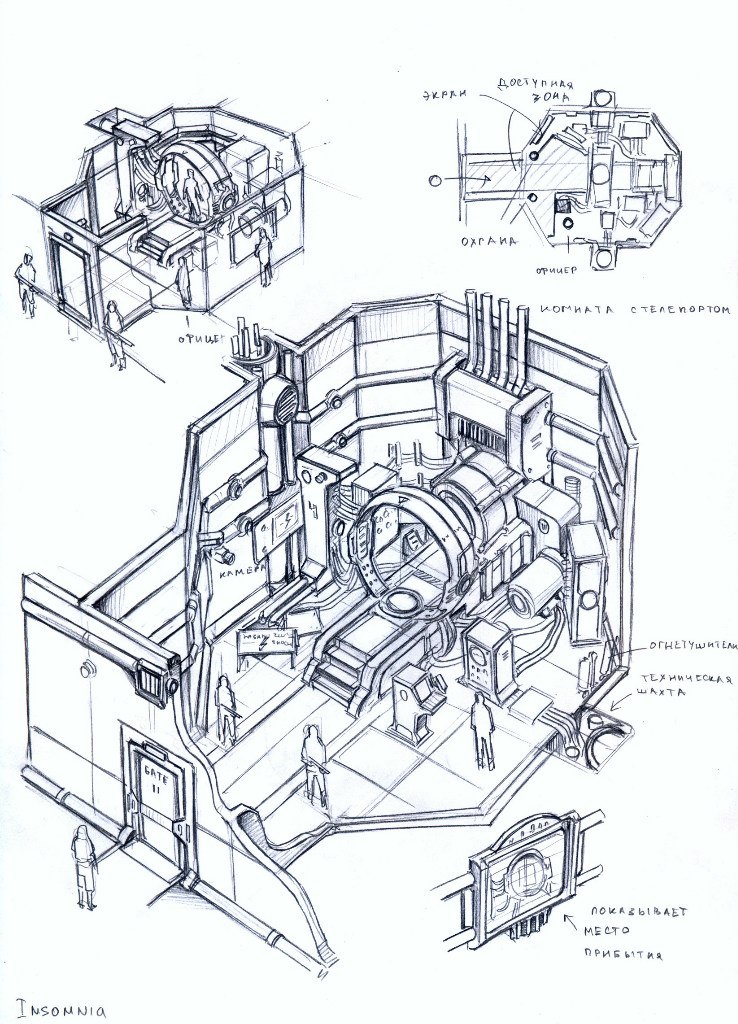 ЭКРАН
ДОСТУПНАЯ
ЗОНА
ОХРАНА
ОФИЦЕР
КОМНАТА С ТЕЛЕПОРТОМ
ОФИЦЕР
4
КАМЕРА
ОГНЕТУШИТЕЛИ
ТЕХНИЧЕСКАЯ
ШАХТА
GATE
11
ПОКАЗЫВАЕТ
МЕСТО
ПРИБЫТИЯ
INSOMNIA